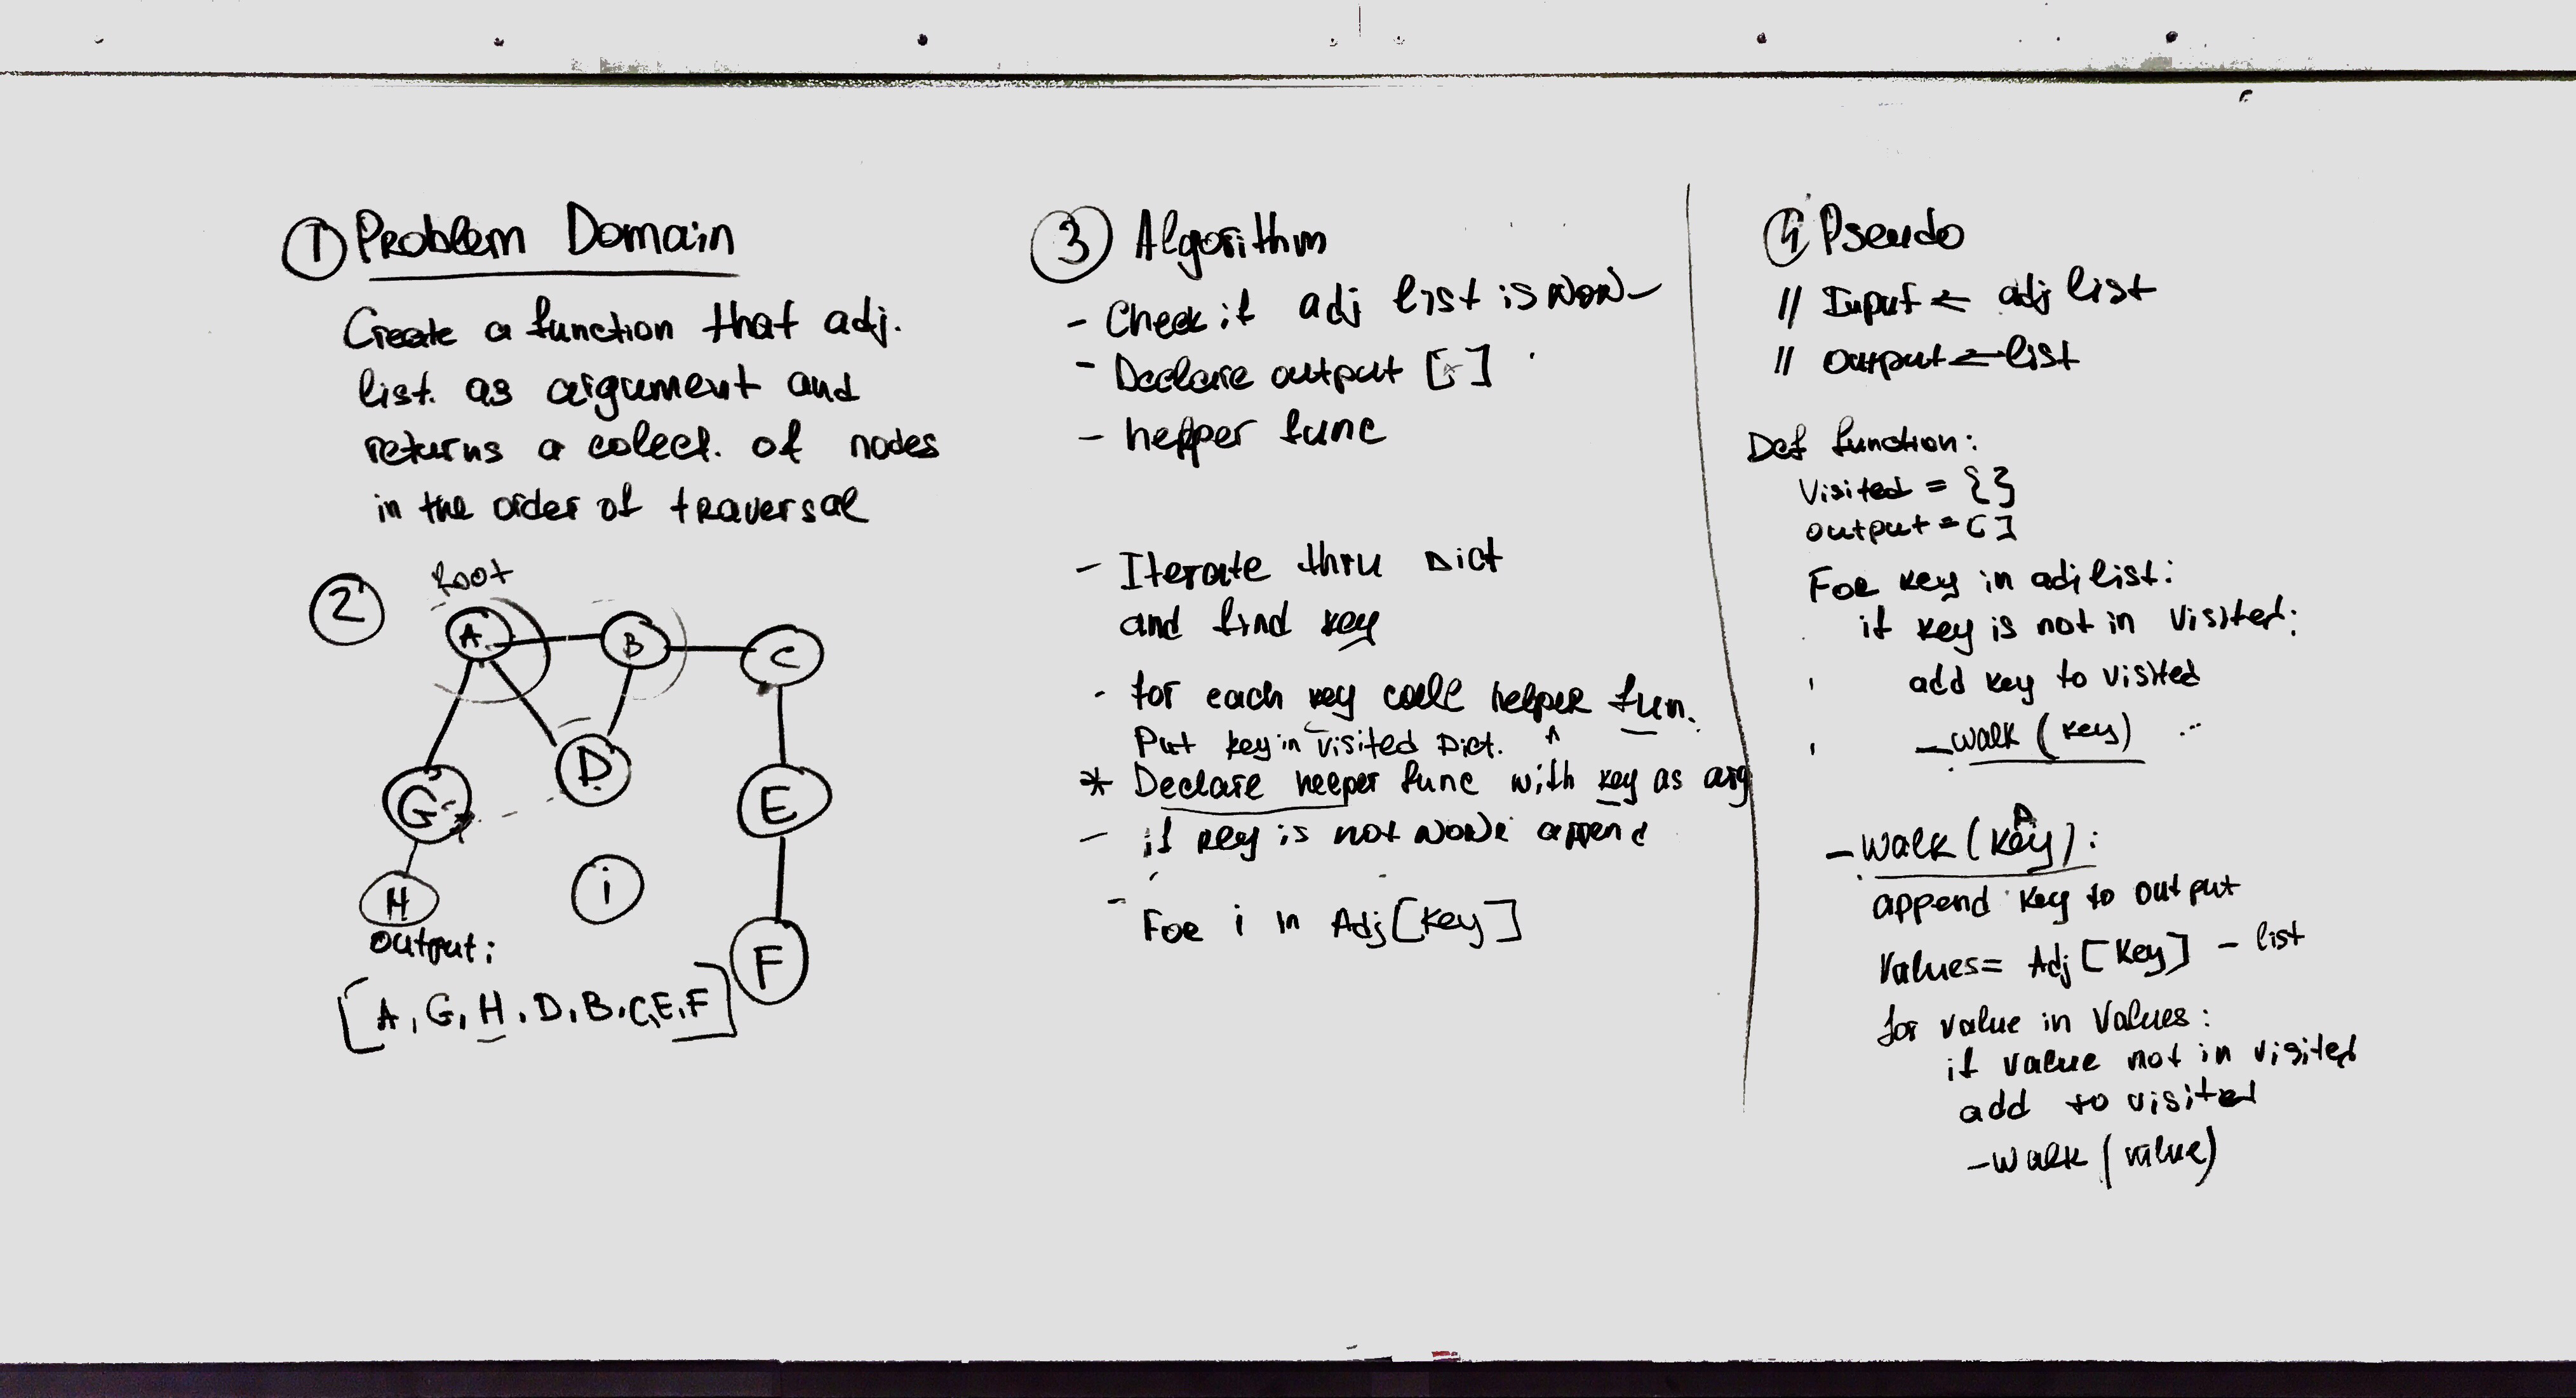 ① Problem Domain
Create a function that adj.
list. as argument and
returns a colect. of nodes
in the order of traversal
②
Root
A
B
C
G
D
E
H
i
F
output:
[A, G, H, D, B, C, E, F]
③ Algorithm
- Check if adj list is NON
- Declare output [ ]
- helper func
- Iterate thru Dict
and find key
- for each key call helper fun.
Put key in visited Dict.
* Declare helper func with key as arg
- if key is not None append
- For i in Adj[key]
④ Pseudo
// Input ← adj list
// output ← list
Def function:
Visited = {}
output = []
For key in adj list:
if key is not in visited:
add key to visited
_walk (key)
_walk (key):
append key to output
Values = Adj [key] - list
for value in Values:
if value not in visited
add to visited
_walk (value)